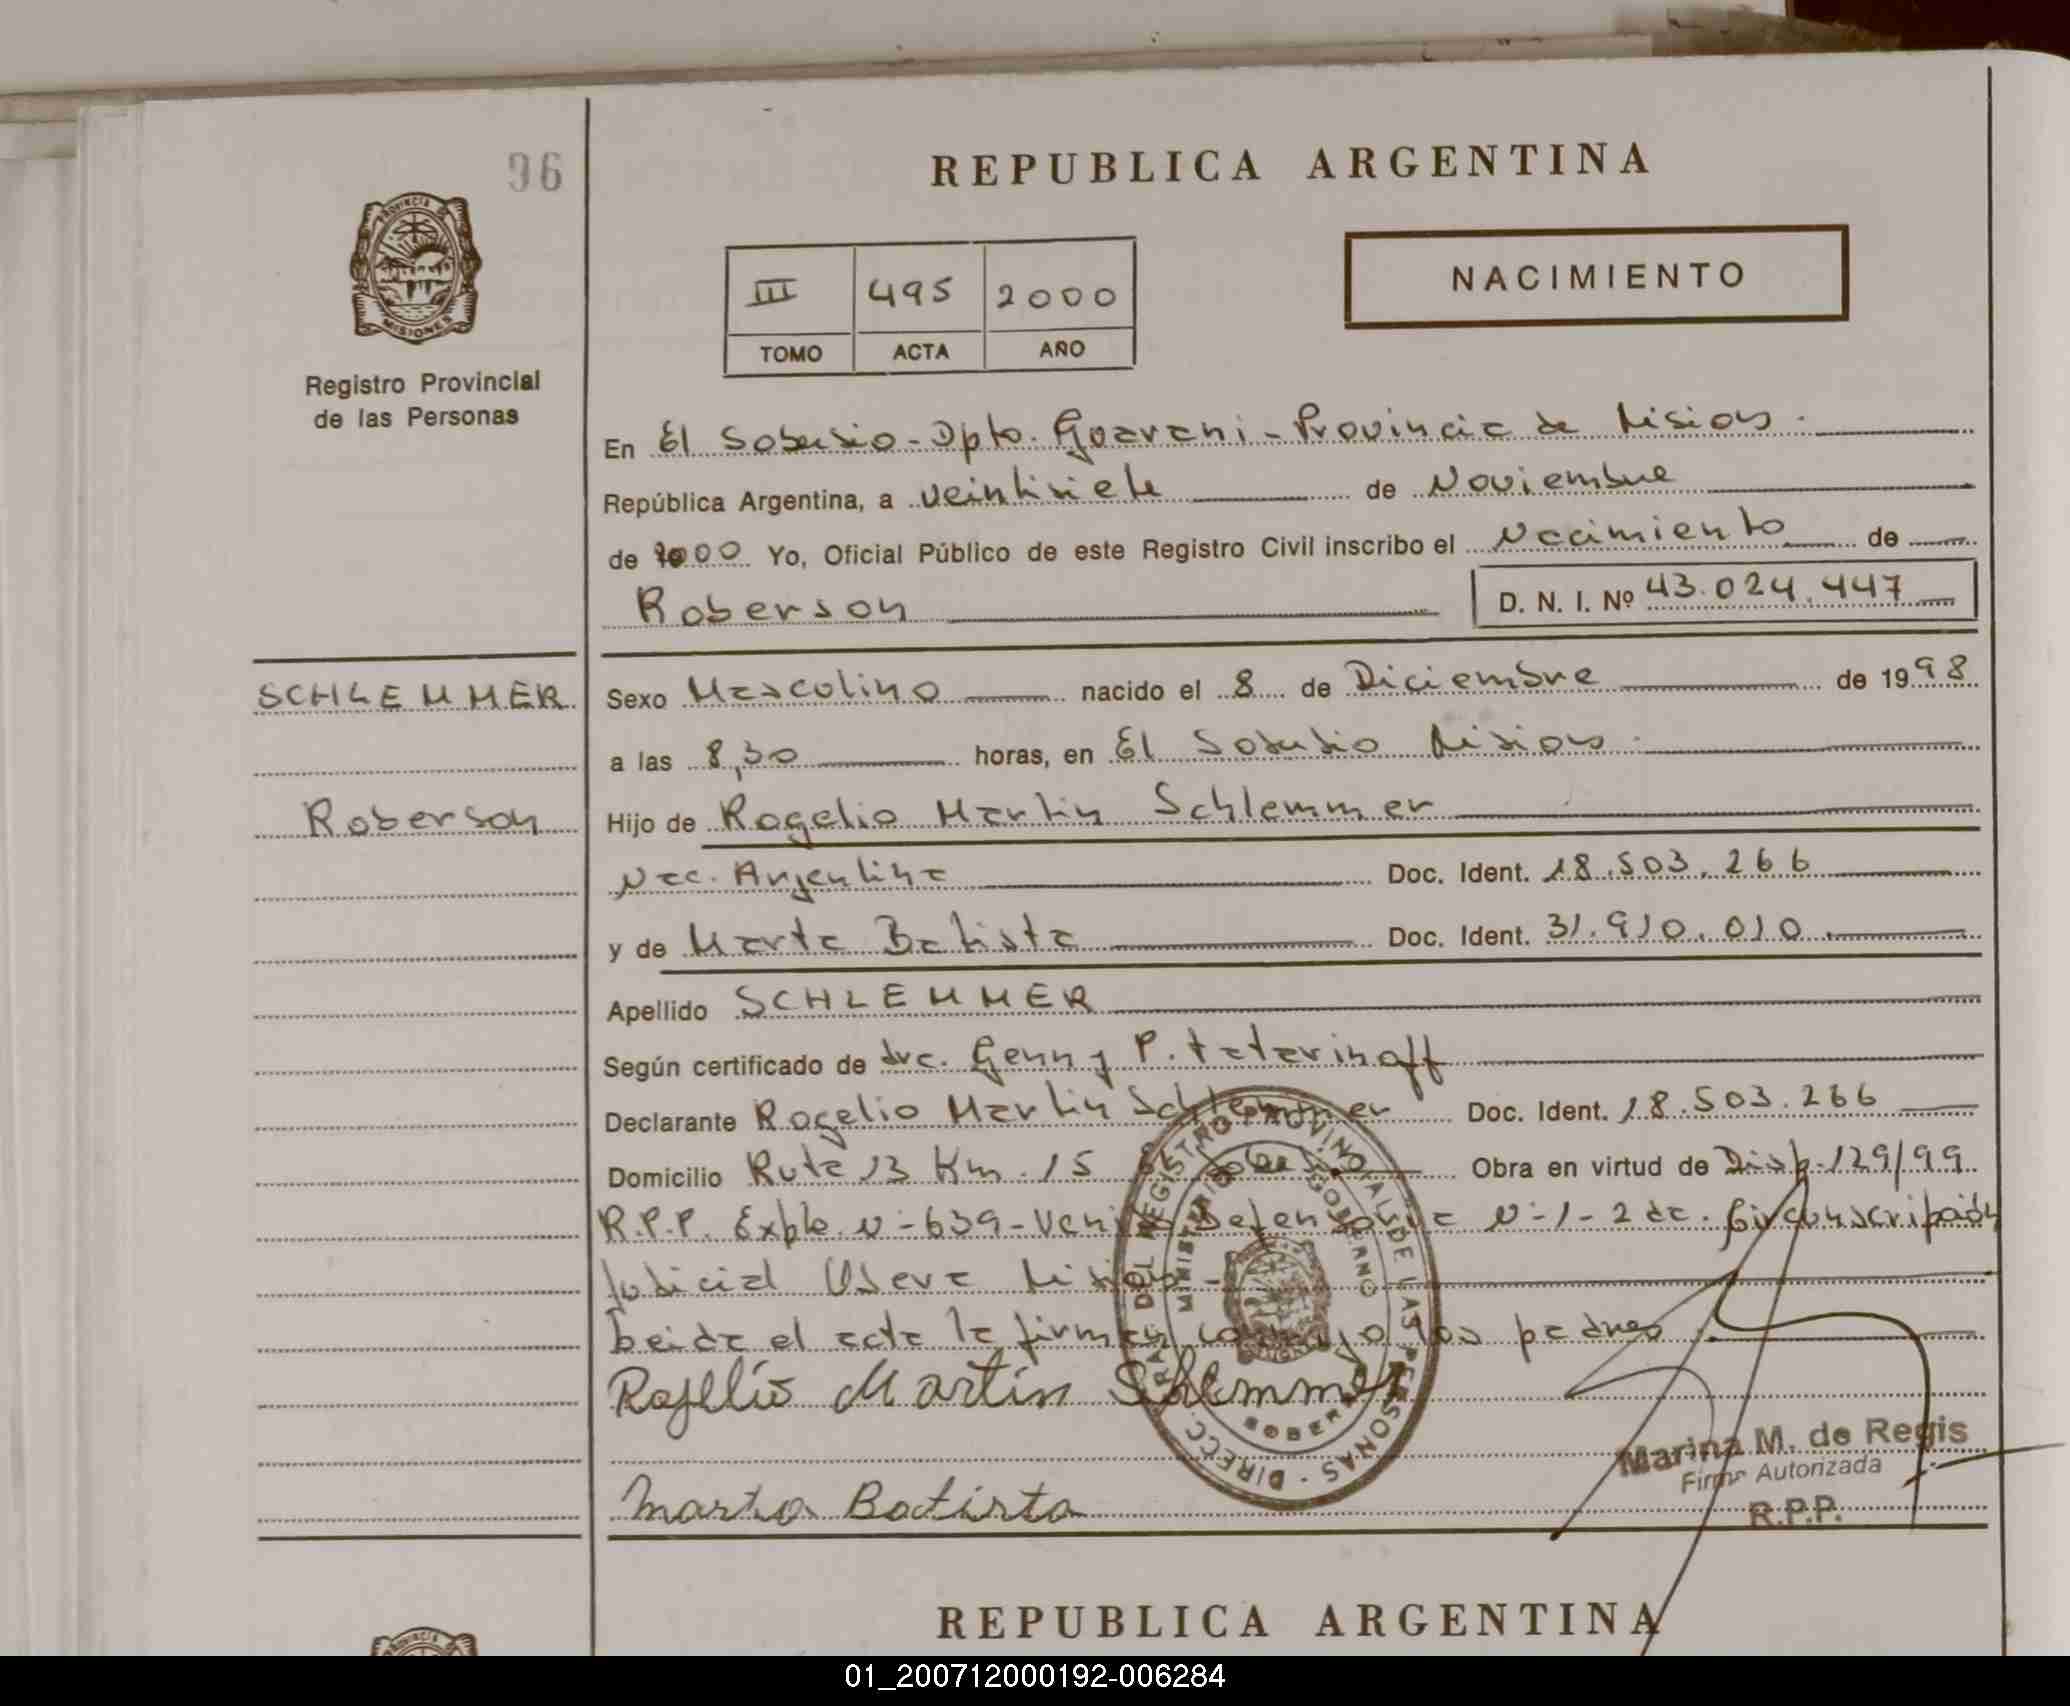 96
REPUBLICA ARGENTINA
PROVINCIA DE
MISIONES
Registro Provincial
de las Personas
III 495 2000
TOMO ACTA AÑO
NACIMIENTO
En El Soberbio - Dpto. Guarani - Provincia de Misiones.
República Argentina, a veintisiete de Noviembre
de 2000 Yo, Oficial Público de este Registro Civil inscribo el Nacimiento de
Roberson
D. N. I. Nº 43.024.447
SCHLEMMER
Roberson
Sexo Masculino nacido el 8 de Diciembre de 1998
a las 8,30 horas, en El Soberbio Misiones.
Hijo de Rogelio Martin Schlemmer
Nac. Argentina Doc. Ident. 18.503.266
y de Marta Batista Doc. Ident. 31.910.010.
Apellido SCHLEMMER
Según certificado de dra. Genny P. Tatarinoff
Declarante Rogelio Martin Schlemmer Doc. Ident. 18.503.266
Domicilio Ruta 13 Km. 15 Obra en virtud de Disp. 129/99
R.P.P. Expte. N-639- Defensoria N-1-2da. Circunscripción
Judicial Obera Misiones-
Leida el acta la firman los padres
Rogelio Martin Schlemmer
Marta Batista
DIRECC. GRAL. DEL REGISTRO PROVINCIAL DE LAS PERSONAS
MINISTERIO DE GOBIERNO
Marina M. de Regis
Firma Autorizada
R.P.P.
REPUBLICA ARGENTINA
01_200712000192-006284